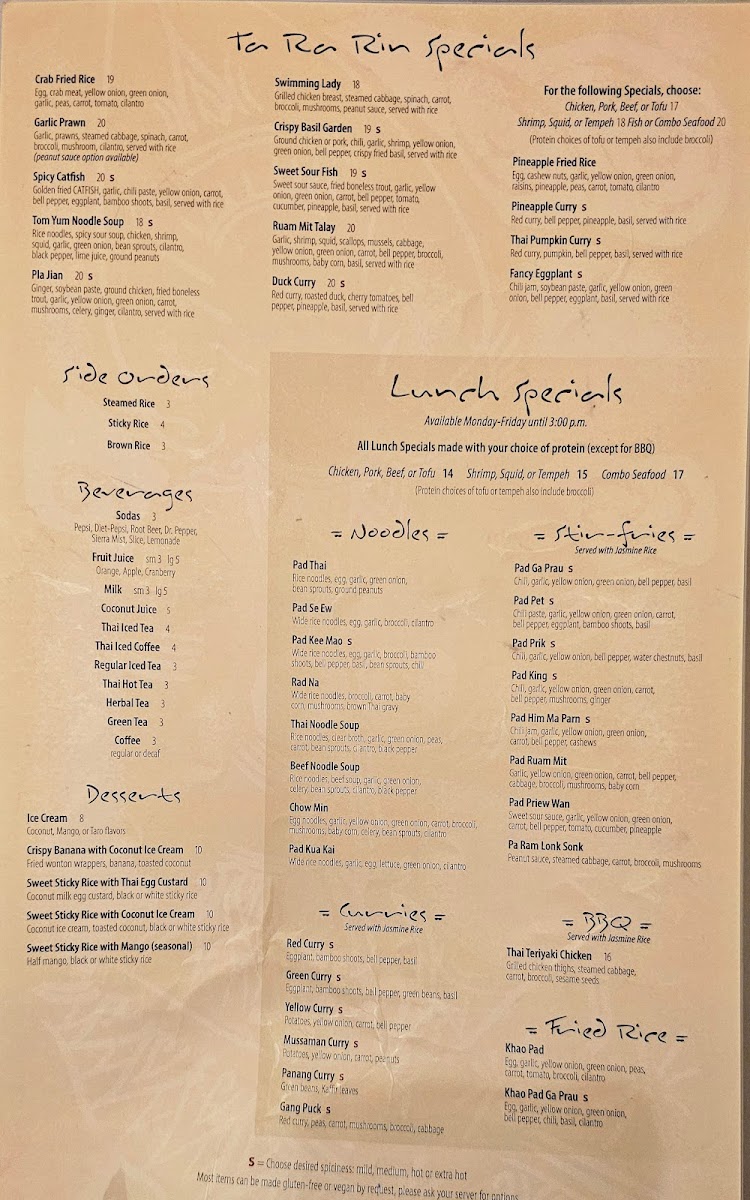 Ta Ra Rin Specials
Crab Fried Rice 19
Egg, crab meat, yellow onion, green onion,
garlic, peas, carrot, tomato, cilantro
Garlic Prawn 20
Garlic, prawns, steamed cabbage, spinach, carrot,
broccoli, mushroom, cilantro, served with rice
(peanut sauce option available)
Spicy Catfish 20 s
Golden fried CATFISH, garlic, chili paste, yellow onion, carrot,
bell pepper, eggplant, bamboo shoots, basil, served with rice
Tom Yum Noodle Soup 18 s
Rice noodles, spicy sour soup, chicken, shrimp,
squid, garlic, green onion, bean sprouts, cilantro,
black pepper, lime juice, ground peanuts
Pla Jian 20 s
Ginger, soybean paste, ground chicken, fried boneless
trout, garlic, yellow onion, green onion, carrot,
mushrooms, celery, ginger, cilantro, served with rice
Swimming Lady 18
Grilled chicken breast, steamed cabbage, spinach, carrot,
broccoli, mushrooms, peanut sauce, served with rice
Crispy Basil Garden 19 s
Ground chicken or pork, chili, garlic, shrimp, yellow onion,
green onion, bell pepper, crispy fried basil, served with rice
Sweet Sour Fish 19 s
Sweet sour sauce, fried boneless trout, garlic, yellow
onion, green onion, carrot, bell pepper, tomato,
cucumber, pineapple, basil, served with rice
Ruam Mit Talay 20
Garlic, shrimp, squid, scallops, mussels, cabbage,
yellow onion, green onion, carrot, bell pepper, broccoli,
mushrooms, baby corn, basil, served with rice
Duck Curry 20 s
Red curry, roasted duck, cherry tomatoes, bell
pepper, pineapple, basil, served with rice
For the following Specials, choose:
Chicken, Pork, Beef, or Tofu 17
Shrimp, Squid, or Tempeh 18 Fish or Combo Seafood 20
(Protein choices of tofu or tempeh also include broccoli)
Pineapple Fried Rice
Egg, cashew nuts, garlic, yellow onion, green onion,
raisins, pineapple, peas, carrot, tomato, cilantro
Pineapple Curry s
Red curry, bell pepper, pineapple, basil, served with rice
Thai Pumpkin Curry s
Red curry, pumpkin, bell pepper, basil, served with rice
Fancy Eggplant s
Chili jam, soybean paste, garlic, yellow onion, green
onion, bell pepper, eggplant, basil, served with rice
Side Orders
Steamed Rice 3
Sticky Rice 4
Brown Rice 3
Beverages
Sodas 3
Pepsi, Diet-Pepsi, Root Beer, Dr. Pepper,
Sierra Mist, Slice, Lemonade
Fruit Juice sm 3 lg 5
Orange, Apple, Cranberry
Milk sm 3 lg 5
Coconut Juice 5
Thai Iced Tea 4
Thai Iced Coffee 4
Regular Iced Tea 3
Thai Hot Tea 3
Herbal Tea 3
Green Tea 3
Coffee 3
regular or decaf
Desserts
Ice Cream 8
Coconut, Mango, or Taro flavors
Crispy Banana with Coconut Ice Cream 10
Fried wonton wrappers, banana, toasted coconut
Sweet Sticky Rice with Thai Egg Custard 10
Coconut milk egg custard, black or white sticky rice
Sweet Sticky Rice with Coconut Ice Cream 10
Coconut ice cream, toasted coconut, black or white sticky rice
Sweet Sticky Rice with Mango (seasonal) 10
Half mango, black or white sticky rice
Lunch Specials
Available Monday-Friday until 3:00 p.m.
All Lunch Specials made with your choice of protein (except for BBQ)
Chicken, Pork, Beef, or Tofu 14 Shrimp, Squid, or Tempeh 15 Combo Seafood 17
(Protein choices of tofu or tempeh also include broccoli)
= Noodles =
Pad Thai
Rice noodles, egg, garlic, green onion,
bean sprouts, ground peanuts
Pad Se Ew
Wide rice noodles, egg, garlic, broccoli, cilantro
Pad Kee Mao s
Wide rice noodles, egg, garlic, broccoli, bamboo
shoots, bell pepper, basil, bean sprouts, chili
Rad Na
Wide rice noodles, broccoli, carrot, baby
corn, mushrooms, brown Thai gravy
Thai Noodle Soup
Rice noodles, clear broth, garlic, green onion, peas,
carrot, bean sprouts, cilantro, black pepper
Beef Noodle Soup
Rice noodles, beef soup, garlic, green onion,
celery, bean sprouts, cilantro, black pepper
Chow Min
Egg noodles, garlic, yellow onion, green onion, carrot, broccoli,
mushrooms, baby corn, celery, bean sprouts, cilantro
Pad Kua Kai
Wide rice noodles, garlic, egg, lettuce, green onion, cilantro
= Stir-fries =
Served with Jasmine Rice
Pad Ga Prau s
Chili, garlic, yellow onion, green onion, bell pepper, basil
Pad Pet s
Chili paste, garlic, yellow onion, green onion, carrot,
bell pepper, eggplant, bamboo shoots, basil
Pad Prik s
Chili, garlic, yellow onion, bell pepper, water chestnuts, basil
Pad King s
Chili, garlic, yellow onion, green onion, carrot,
bell pepper, mushrooms, ginger
Pad Him Ma Parn s
Chili jam, garlic, yellow onion, green onion,
carrot, bell pepper, cashews
Pad Ruam Mit
Garlic, yellow onion, green onion, carrot, bell pepper,
cabbage, broccoli, mushrooms, baby corn
Pad Priew Wan
Sweet sour sauce, garlic, yellow onion, green onion,
carrot, bell pepper, tomato, cucumber, pineapple
Pa Ram Lonk Sonk
Peanut sauce, steamed cabbage, carrot, broccoli, mushrooms
= Curries =
Served with Jasmine Rice
Red Curry s
Eggplant, bamboo shoots, bell pepper, basil
Green Curry s
Eggplant, bamboo shoots, bell pepper, green beans, basil
Yellow Curry s
Potatoes, yellow onion, carrot, bell pepper
Mussaman Curry s
Potatoes, yellow onion, carrot, peanuts
Panang Curry s
Green beans, Kaffir leaves
Gang Puck s
Red curry, peas, carrot, mushrooms, broccoli, cabbage
= BBQ =
Served with Jasmine Rice
Thai Teriyaki Chicken 16
Grilled chicken thighs, steamed cabbage,
carrot, broccoli, sesame seeds
= Fried Rice =
Khao Pad
Egg, garlic, yellow onion, green onion, peas,
carrot, tomato, broccoli, cilantro
Khao Pad Ga Prau s
Egg, garlic, yellow onion, green onion,
bell pepper, chili, basil, cilantro
S = Choose desired spiciness: mild, medium, hot or extra hot
Most items can be made gluten-free or vegan by request, please ask your server for options